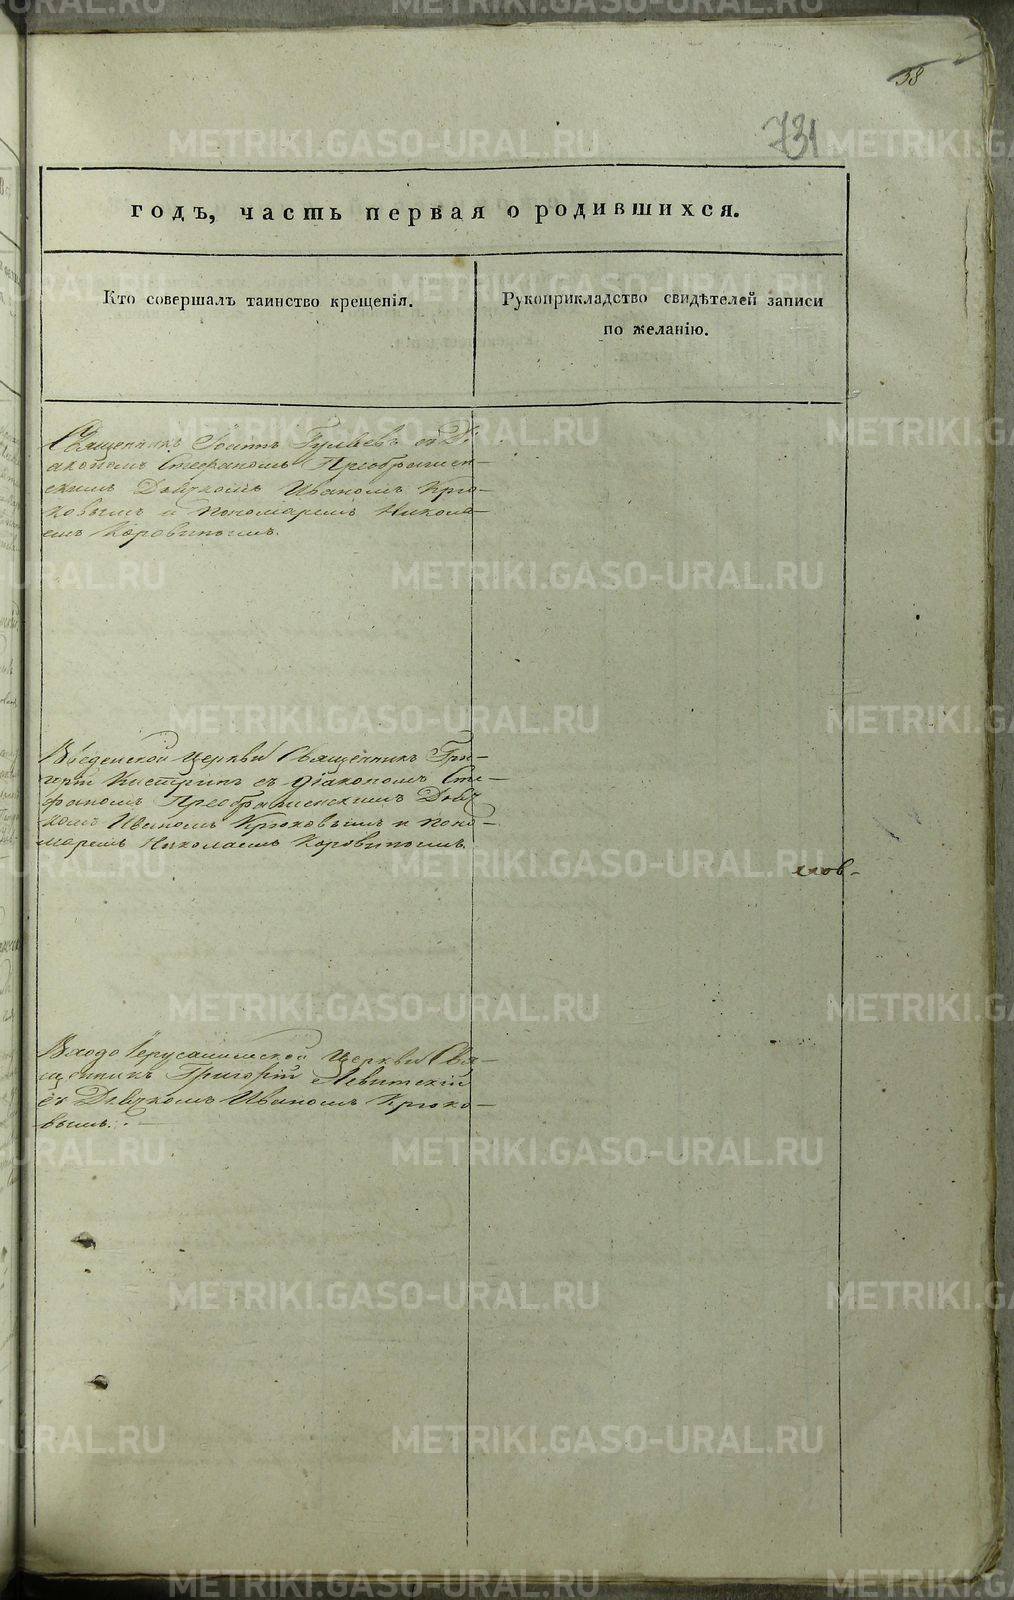 38
731
годъ, часть первая о родившихся.
Кто совершалъ таинство крещенія.
Рукоприкладство свидѣтелей записи
по желанію.
Священникъ Іоаннъ Гуляевъ съ Ді
акономъ Стефаномъ Преображен-
скимъ Дьячкомъ Иваномъ Крю-
ковымъ и пономаремъ Никола-
емъ Коровинымъ.
Введенской церкви Священникъ Гри-
горій съ діакономъ Сте-
фаномъ Преображенскимъ Дьяч
комъ Иваномъ Крюковымъ и поно-
маремъ Николаемъ Коровинымъ.
Входо Іерусалимской Церкви Свя-
щенникъ Григорій Левитскій
съ Дьячкомъ Иваномъ Крюко-
вымъ.
METRIKI.GASO-URAL.RU